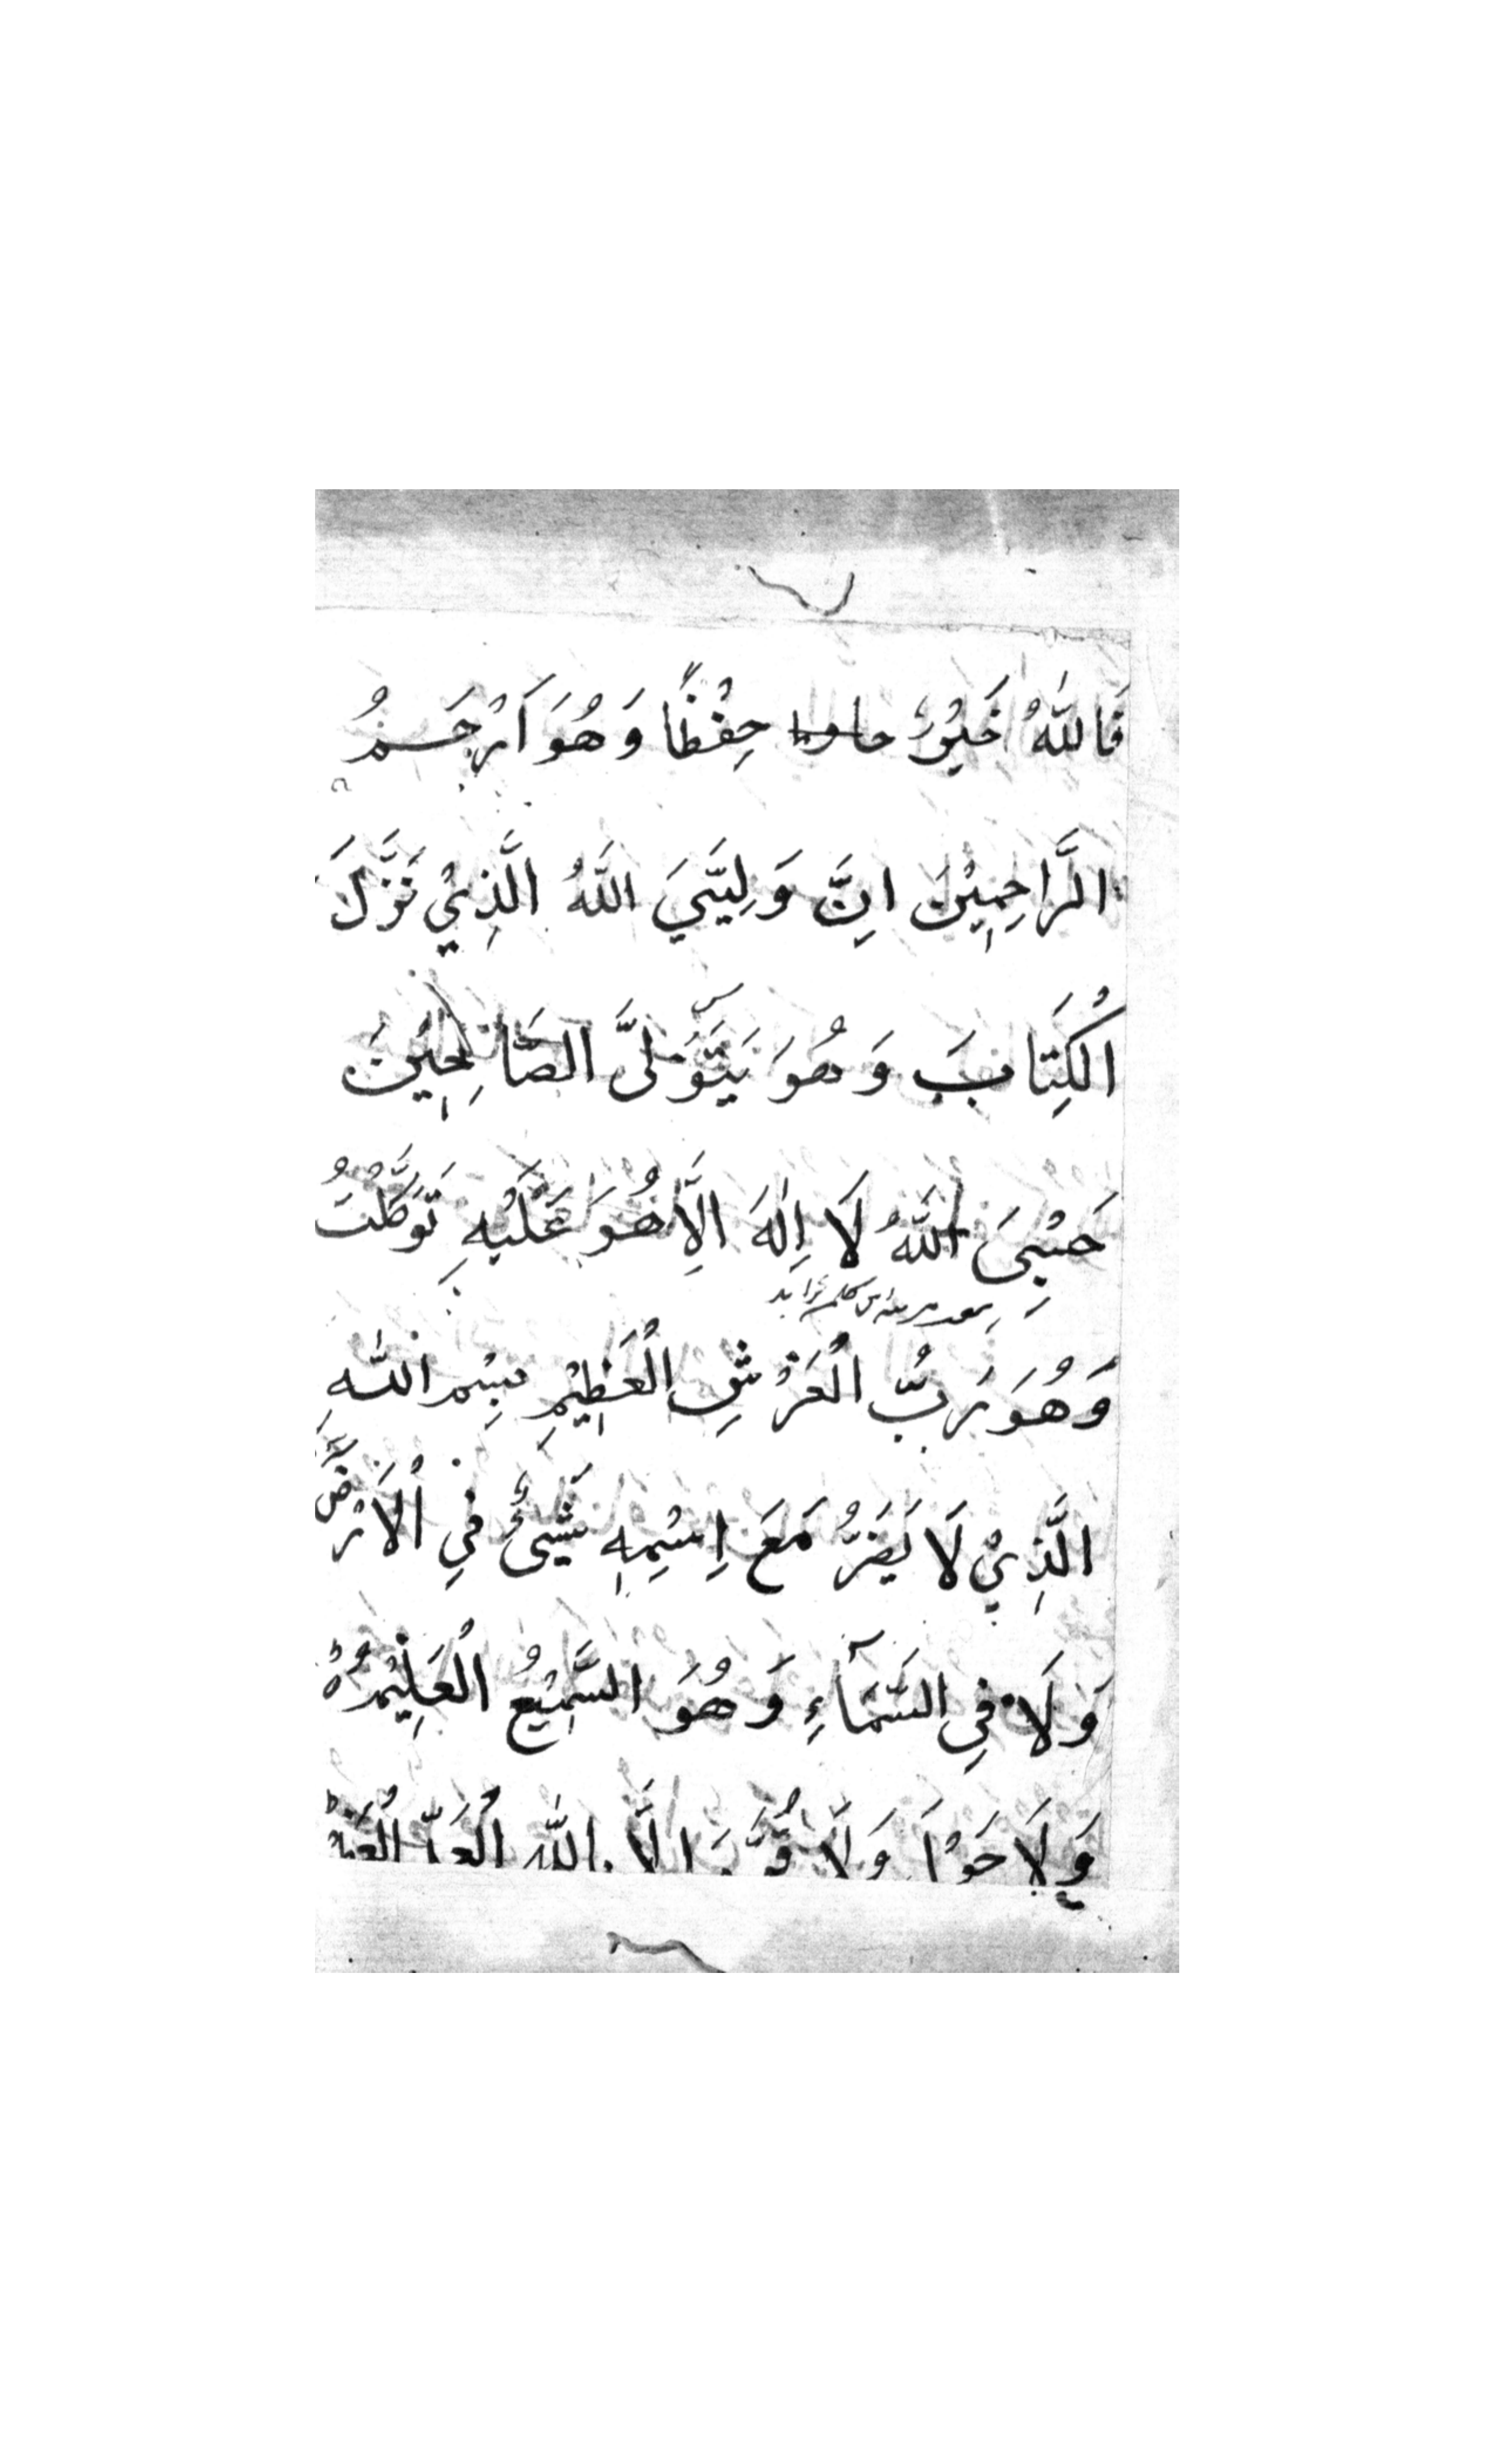 فَاللهُ خَيْرٌ حِفْظًا وَهُوَ اَرْحَمُ
الرَّاحِمِيْنَ اِنَّ وَلِيِّيَ اللهُ الَّذِيْ نَزَّلَ
الْكِتَابَ وَهُوَ يَتَوَلَّى الصَّالِحِيْنَ
حَسْبِيَ اللهُ لَا اِلٰهَ اِلَّا هُوَ عَلَيْهِ تَوَكَّلْتُ
وَهُوَ رَبُّ الْعَرْشِ الْعَظِيْمِ بِسْمِ اللهِ
الَّذِيْ لَا يَضُرُّ مَعَ اِسْمِهِ شَيْئٌ فِي الْاَرْضِ
وَلَا فِي السَّمَآءِ وَهُوَ السَّمِيْعُ الْعَلِيْمُ
وَلَا حَوْلَ وَلَا قُوَّةَ اِلَّا بِاللهِ الْعَلِيِّ الْعَظِ